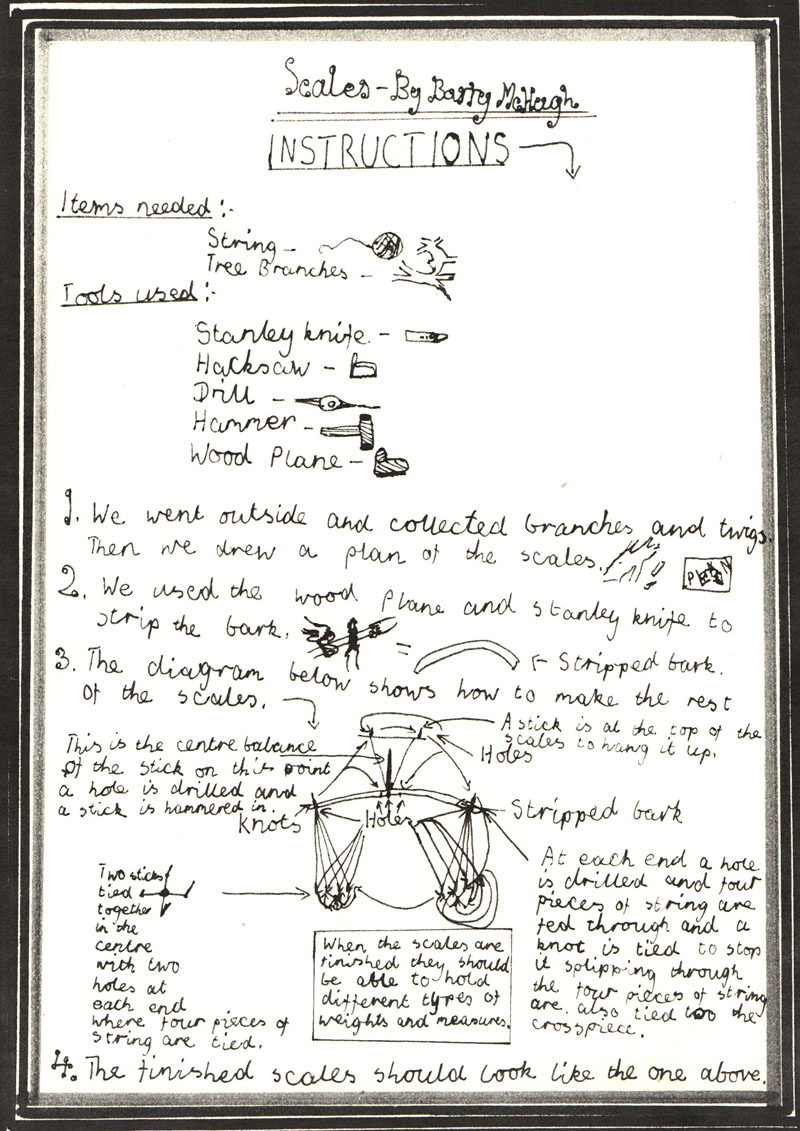 Scales - By Barry McHugh
INSTRUCTIONS
Items needed :-
String -
Tree Branches -
Tools used :-
Stanley knife. -
Hacksaw -
Drill -
Hammer -
Wood Plane -
1. We went outside and collected branches and twigs.
Then we drew a plan of the scales.
PLAN
2. We used the wood Plane and stanley knife to
strip the bark.
=
Stripped bark.
3. The diagram below shows how to make the rest
of the scales.
A stick is at the top of the
scales to hang it up.
Holes
This is the centre balance
of the stick on this point
a hole is drilled and
a stick is hammered in.
Knots
Holes
Stripped bark
Two sticks
tied
together
in the
centre
with two
holes at
each end
where four pieces of
string are tied.
When the scales are
finished they should
be able to hold
different types of
weights and measures.
At each end a hole
is drilled and four
pieces of string are
fed through and a
knot is tied to stop
it splipping through
the four pieces of string
are also tied too the
crosspiece.
4. The finished scales should look like the one above.